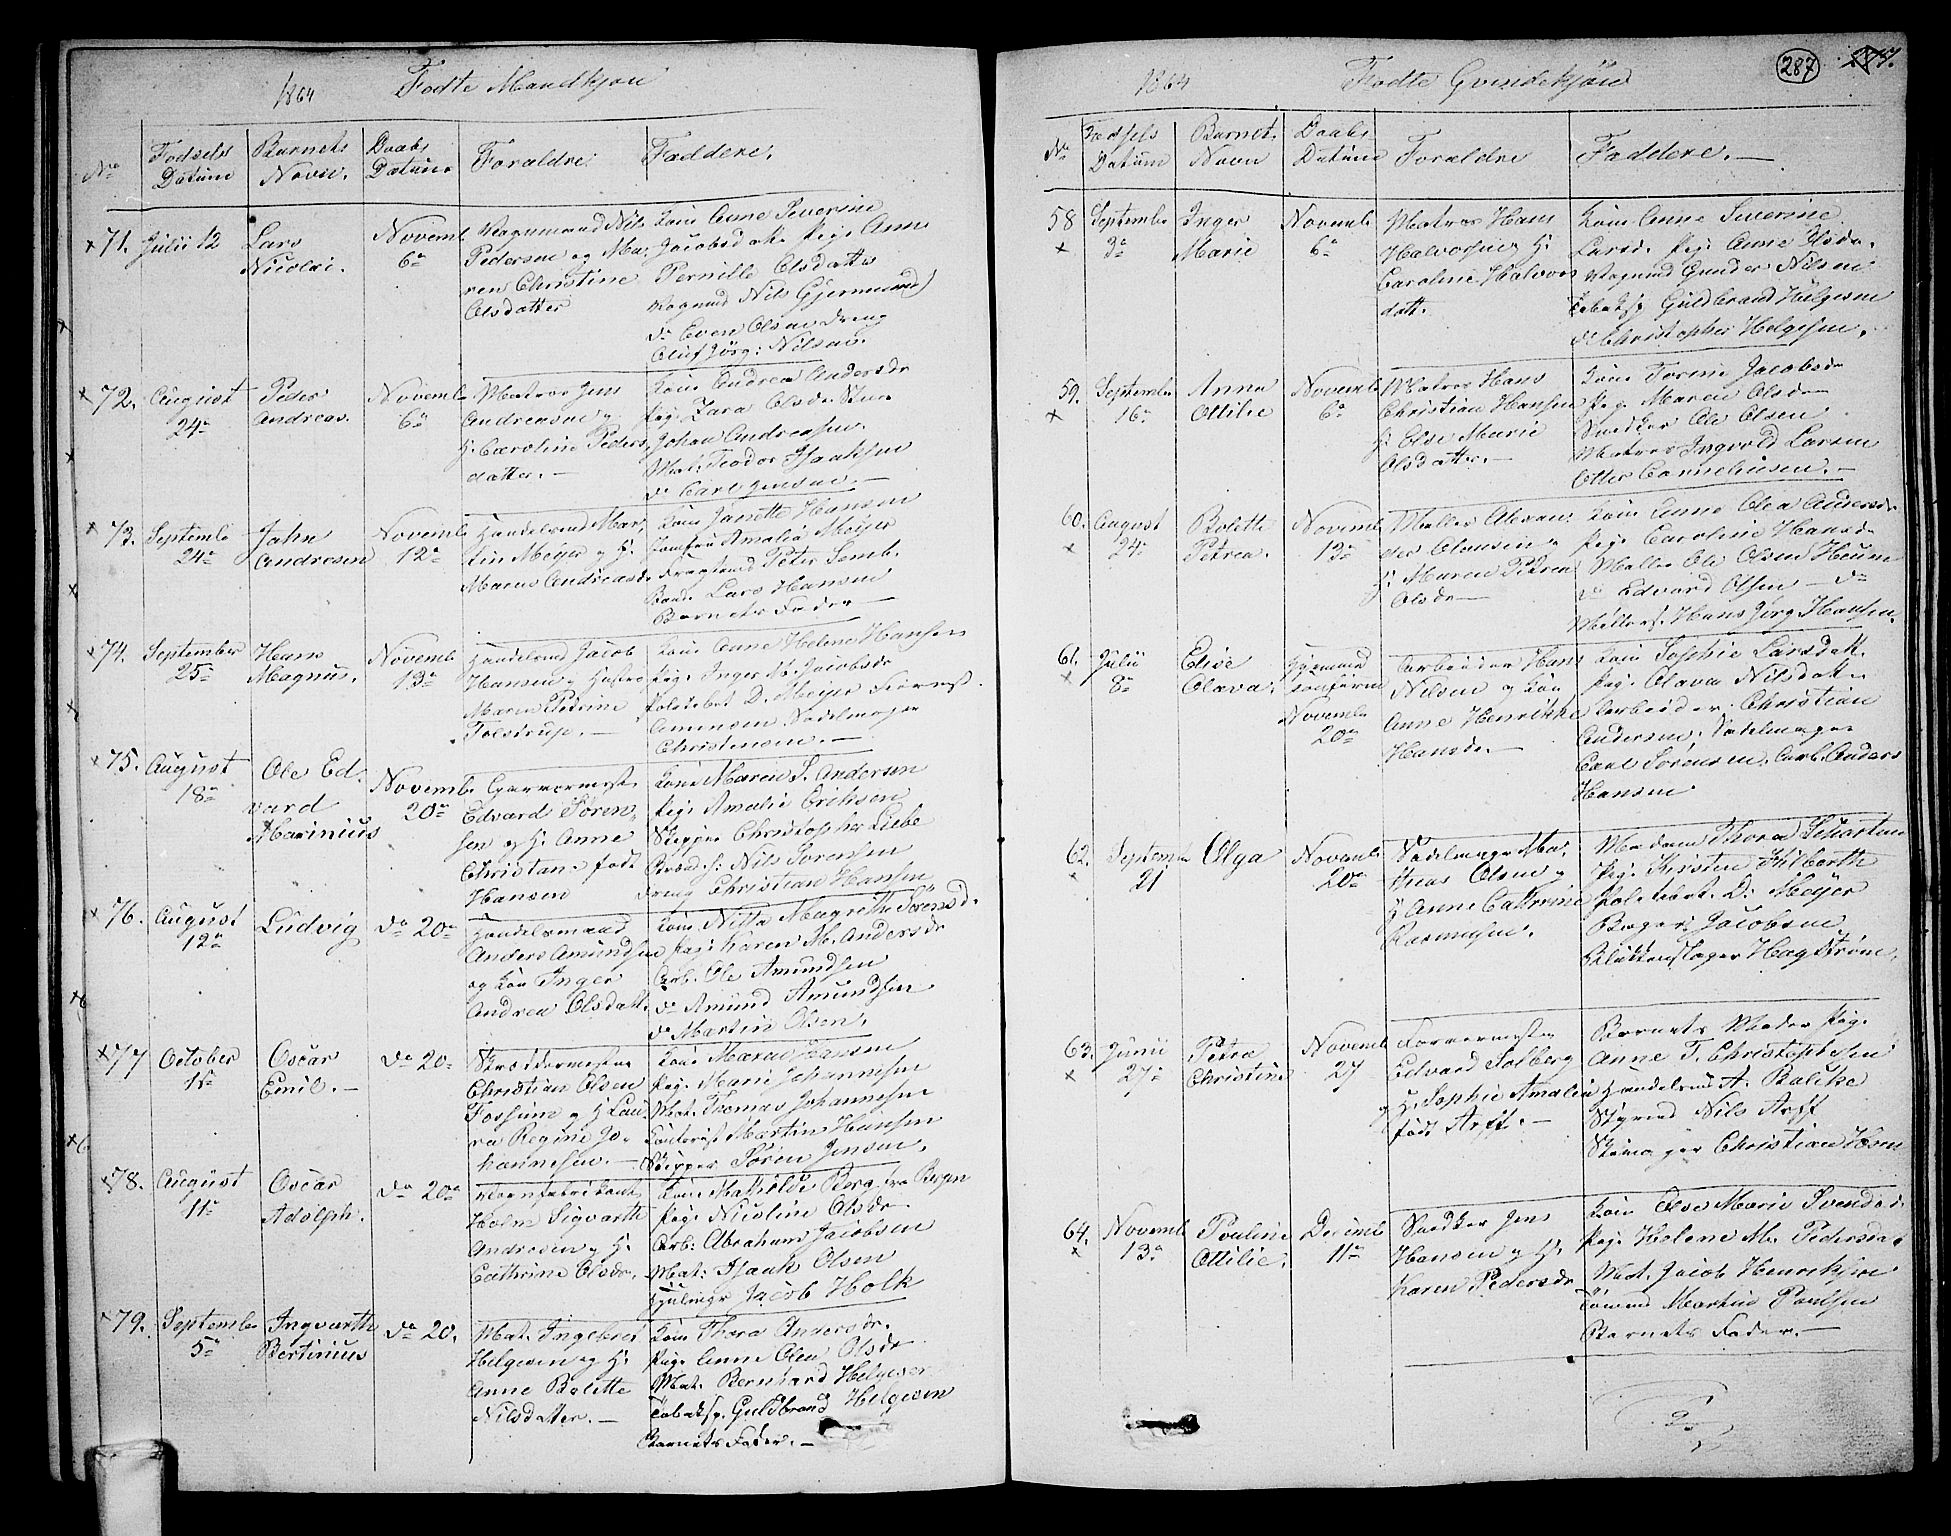 1864 Fødte Mandkjøn
No Fødsels Datum Barnets Navn. Daabs Datum Forældre Faddere.
71. Julii 12 Lars Nicolai. Novemb. 6te
Vognmand Nils
Pedersen og Ma-
ren Christine
Olsdatter
Kone Anne Severine
Jacobsdatt. Pige Anne
Pernille Olsdatter
Vognmd Nils Gjermund
do Even Olsen Dreng
Oluf Jörg: Nilsen.
72. August 24de Peder Andreas. Novemb 6te
Matros Jens
Andreasen og
H. Caroline Peders
datter. —
Kone Andrea Andersdr
Pig. Zara Olsdr
Johan Andreasen.
Mat: Teodor Isaksen
do Carl Jensen. —
73. Septemb 24de Jahn Andresen Novemb 12te
Handelsmd Mar-
tin Meyer og H.
Maren Andreasdr
Kone Janette Hansen
Jomfru Amalia Meyer
Fragtemd Peter Semb.
Lars Hansen
Barnets Fader —
74. September 25de Hans Magnus. Novemb 13de
Handelsmd Jacob
Hansen og Hustro
Maren Petrine
Tolstrup. —
Kone Anne Helene Hansen
Pig. Inger M. Jacobsdr
Politibet. D. Meyer
Amundsen Sadelmager
Christensen. —
75. August 18de Ole Edvard Marinius Novemb. 20de
Garvermester
Edvard Sören-
sen og H. Anne
Christane født
Hansen
Kone Maren S. Andersen
Pige Amalie Eriksen
Skipper Christopher Liebe
Arbeids: Nils Sörensen
Dreng Christian Hansen
76. August 12te Ludvig do 20de
Handelsmand
Anders Amundsen
og Kone Inger
Andrea Olsdatt.
Kone Nilla Magrethe Sörensd.
Pige Karen M. Andersdr
Arb. Ole Amundsen
do Amund Amundsen
do Martin Olsen.
77 October 15de Oscar Emil. — do 20de
Skræddermester
Christian Olsen
Fossum og H. Lau-
ra Regine Jo-
hannesen. —
Kone Maren Jensen
Pige Marie Johannesen
Mat. Thomas Johannesen
Contorist Martin Hansen
Skipper Sören Jensen.
78. August 11te Oscar Adolph. do 20de
Holm Sigvarth
Andresen og H.
Cathrine Olsdr.
Kone Mathilde Berg fra Bergen
Pige Nicoline Olsdr
Arb: Abraham Jacobsen
Mat: Isaak Olsen
Jacob Holk
79. Septembe 5te Ingvarth Bertinius do 20.
Mat. Ingebret
Helgesen og H.
Anne Bolette
Nilsdatter. —
Kone Thora Andersdr.
Pige Anne Olea Olsdr
Mat. Bernhard Helgesen
Tobaksp. Guldbrand Helgesen
Barnets Fader. —
287
1864 Fødte Qvindekjøn
No Fødsels Datum Barnet. Navn Daabs Datum Forældre Faddere. —
58 Septembe 3de Inger Marie Novemb 6te
Matros Hans
Halvorsen og H.
Caroline Halvors
datt.
Kone Anne Severine
Larsd. Pige Anne Olsdr.
Vognmd Gunder Nilsen
Tobaksp Guldbrand Helgesen
do Christopher Helgesen.
59. Septembe 16de Anna Ottilie Novemb 6te
Matros Hans
Christian Hansen
H. Else Marie
Olsdatter. —
Kone Torine Jacobsdr
Pige Maren Olsdr
Snedker Ole Olsen
Matros Ingvold Larsen
Otter Corneliusen. —
60. August 24de Bolette Petrea. Novemb. 13de
Møller Alexan-
der Clausen og
H. Maren Petrea
Olsdr —
Kone Anne Olea Andersdr
Pige Caroline Hansdr
Møller Ole Olsen
do Edvard Olsen — do
Møllers. Hans Jörg Hansen.
61. Julii 8de Elise Olava. Hjemmed confirm Novembe 20de
Arbeider Hans
Nilsen og Kone
Anne Henrikke
Hansdr. —
Kone Sophie Larsdatt.
Pige Olava Nilsdatt.
Arbeider. Christian
Andersen. Sadelmager
Carl Sörensen, Arb. Anders
Hansen
62. Septembe 21 Olga Novemb 20de
Sadelmager Ma-
thias Olsen og
H. Anne Cathrine
Rasmusen.
Madam Thora Schartum
Pige Kirsten Hilberth
Politibet. D. Meyer
Bager: Jacobsen
Blikkenslager Hagström.
63. Junii 27de Petra Christine Novemb 27
Farvermester
Edvard Solberg
og H. Sophie Amalia
født Arff. —
Barnets Moder Pige
Anne T. Christophersen
Handelsmd A. Balcke
Styrmd Nils Arff
Skomager Christian Horn
64. Novemb 13de Pouline Ottilie. Decemb 11te
Snedker Jens
Hansen og H.
Karen Pedersdr
Kone Else Marie Svendsd.
Pige Helene M. Pedersdr
Mat. Jacob Henriksen
Tömmd Martin Poulsen
Barnets Fader. —